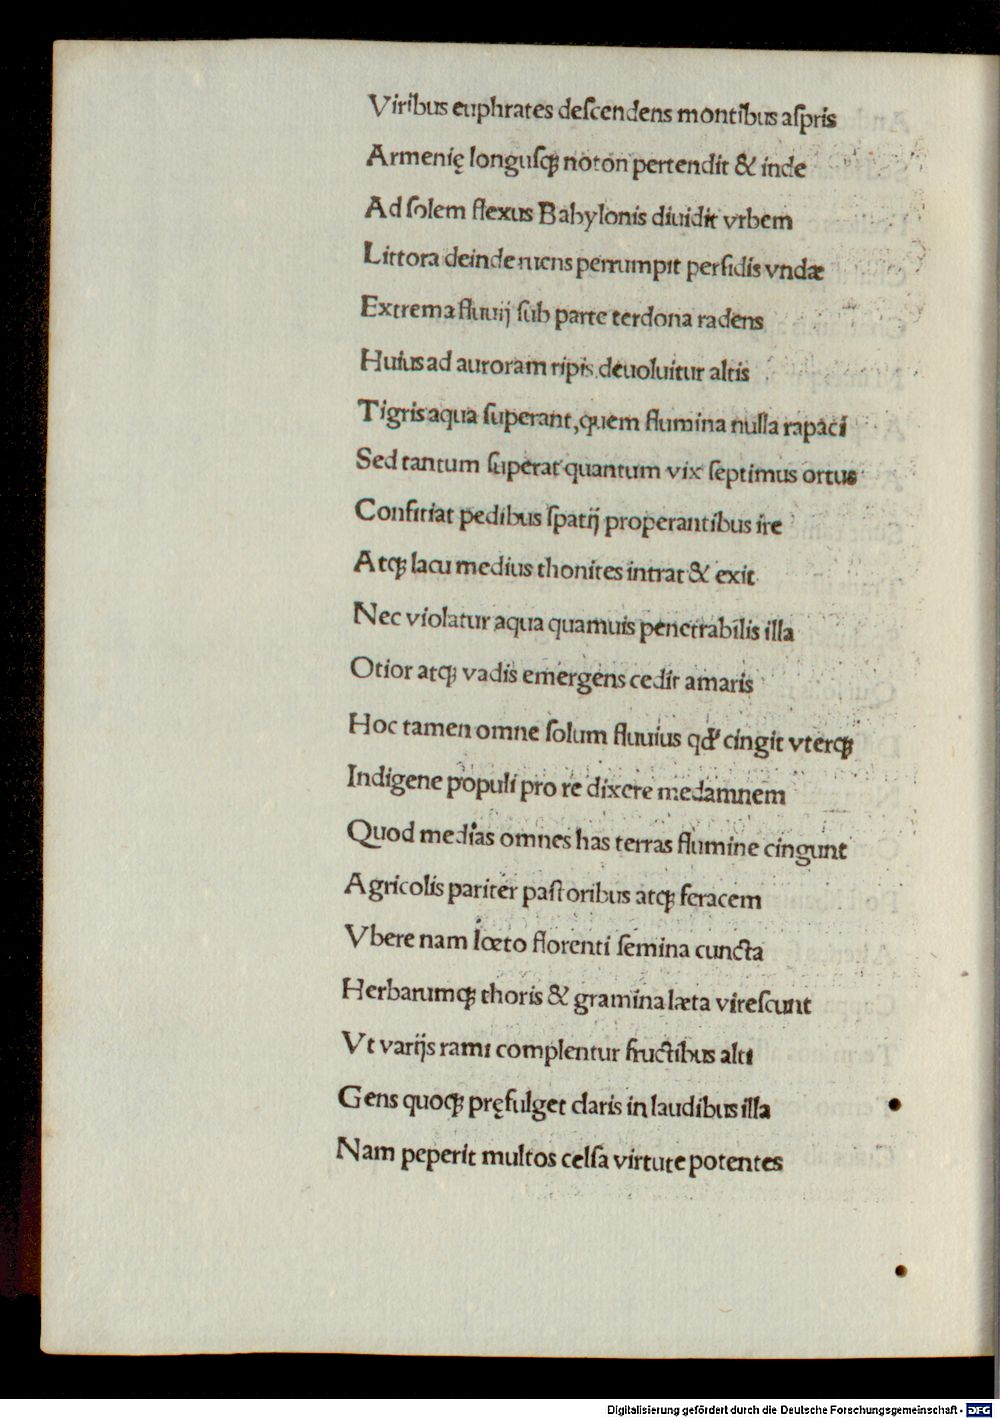 Viribus euphrates deſcendens montibus aſpris
Armenię longuſqꝫ noton pertendit & inde
Ad ſolem flexus Babylonis diuidit vrbem
Littora deinde ruens perrumpit perſidis vndæ
Extrema fluuij ſub parte terdona radens
Huius ad auroram ripis deuoluitur altis
Tigris aqua ſuperant,quem flumina nulla rapaci
Sed tantum ſuperat quantum vix ſeptimus ortus
Confitiat pedibus ſpatij properantibus ire
Atqꝫ lacu medius thonites intrat & exit
Nec violatur aqua quamuis penetrabilis illa
Otior atqꝫ vadis emergens cedit amaris
Hoc tamen omne ſolum fluuius qđ cingit vterqꝫ
Indigene populi pro re dixere medamnem
Quod medias omnes has terras flumine cingunt
Agricolis pariter paſtoribus atqꝫ feracem
Vbere nam lœto florenti ſemina cuncta
Herbarumqꝫ thoris & gramina læta vireſcunt
Vt varijs rami complentur fructibus alti
Gens quoqꝫ pręfulget claris in laudibus illa
Nam peperit multos celſa virtute potentes
Digitalisierung gefördert durch die Deutsche Forschungsgemeinschaft - DFG